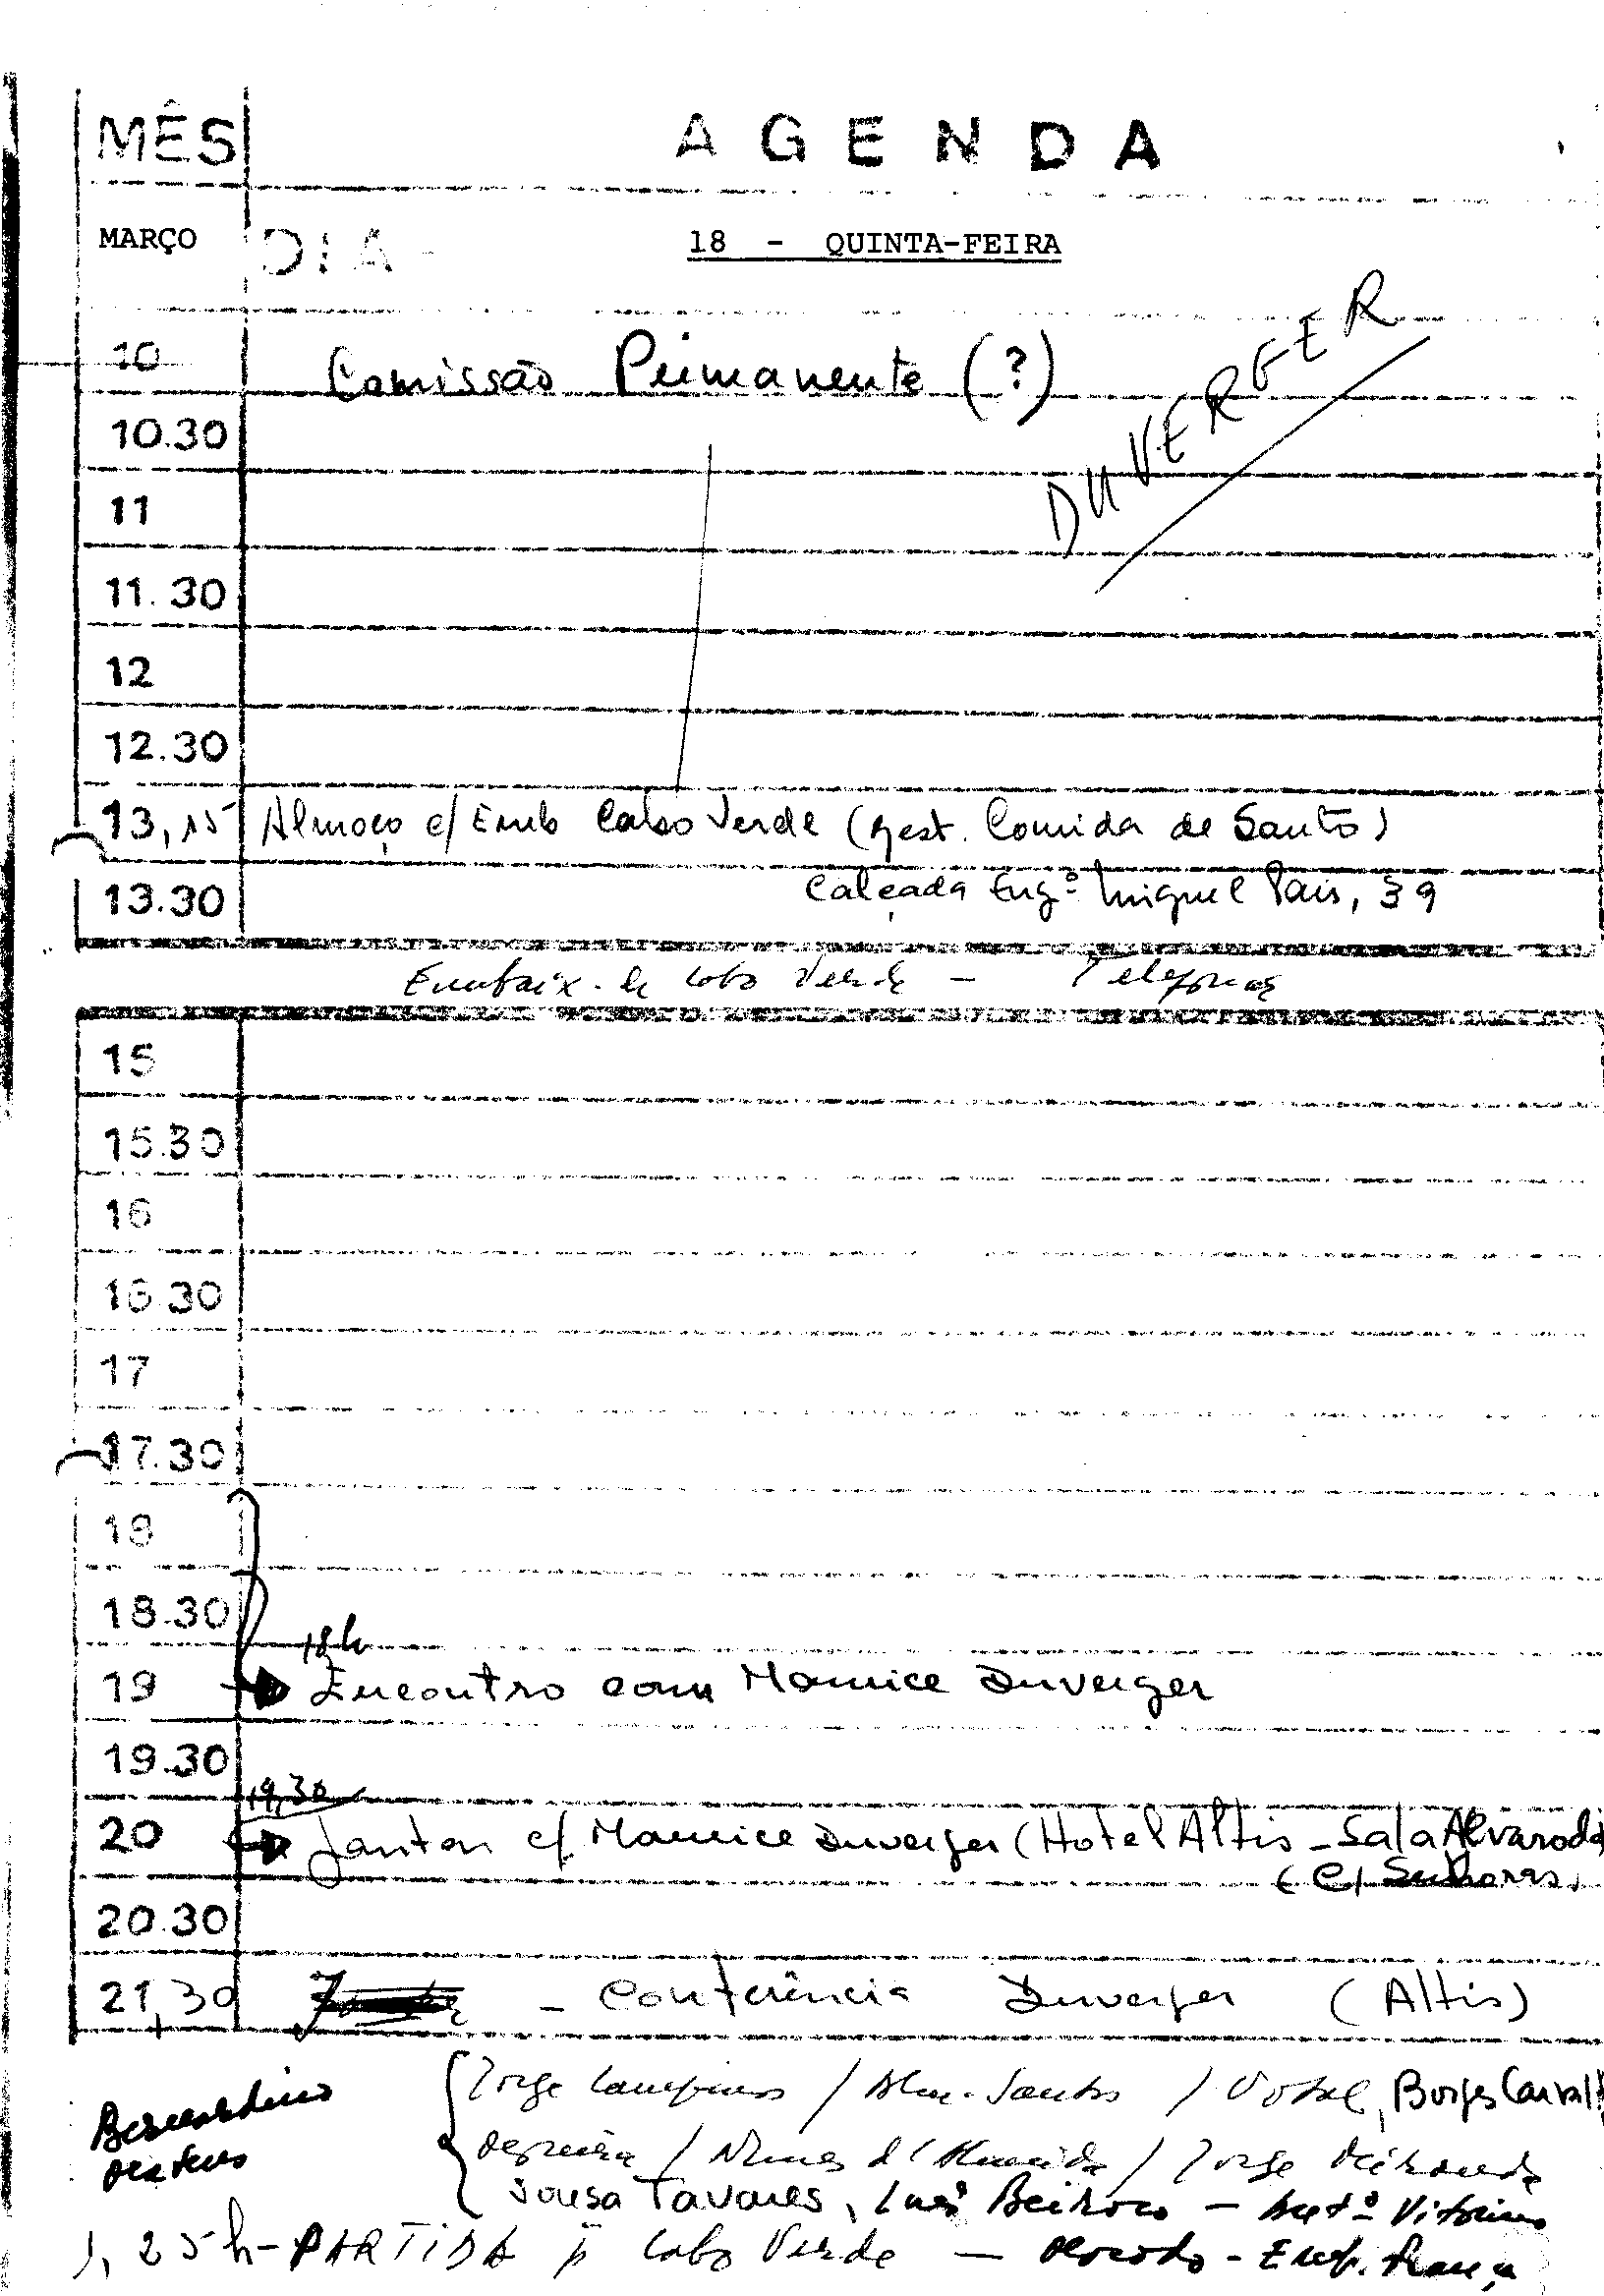 MÊS AGENDA
MARÇO DIA 18 - QUINTA-FEIRA
10 Comissão Permanente (?)
DUVERGER
10.30
11
11.30
12
12.30
13,15 Almoço c/ Emb Cabo Verde (Rest. Comida de Santo)
13.30 Calçada Engº Miguel Pais, 39
Embaix. de Cabo Verde - Telefonar
15
15.30
16
16.30
17
17.30
18
18.30
18h
19 Encontro com Maurice Duverger
19.30
19,30
20 Jantar c/ Maurice Duverger (Hotel Altis - Sala Alvarode
(c/ Senhoras)
20.30
21,30 - Conferência Duverger (Altis)
Jorge Campinos / Alm. Santos / Vital, Borges Carvalh
Bernardino
/ Nunes d'Almeida / Jorge Miranda
Sousa Tavares, Luís Beiroco - Antº Vitorino
1,25h - PARTIDA p Cabo Verde - - Emb. França